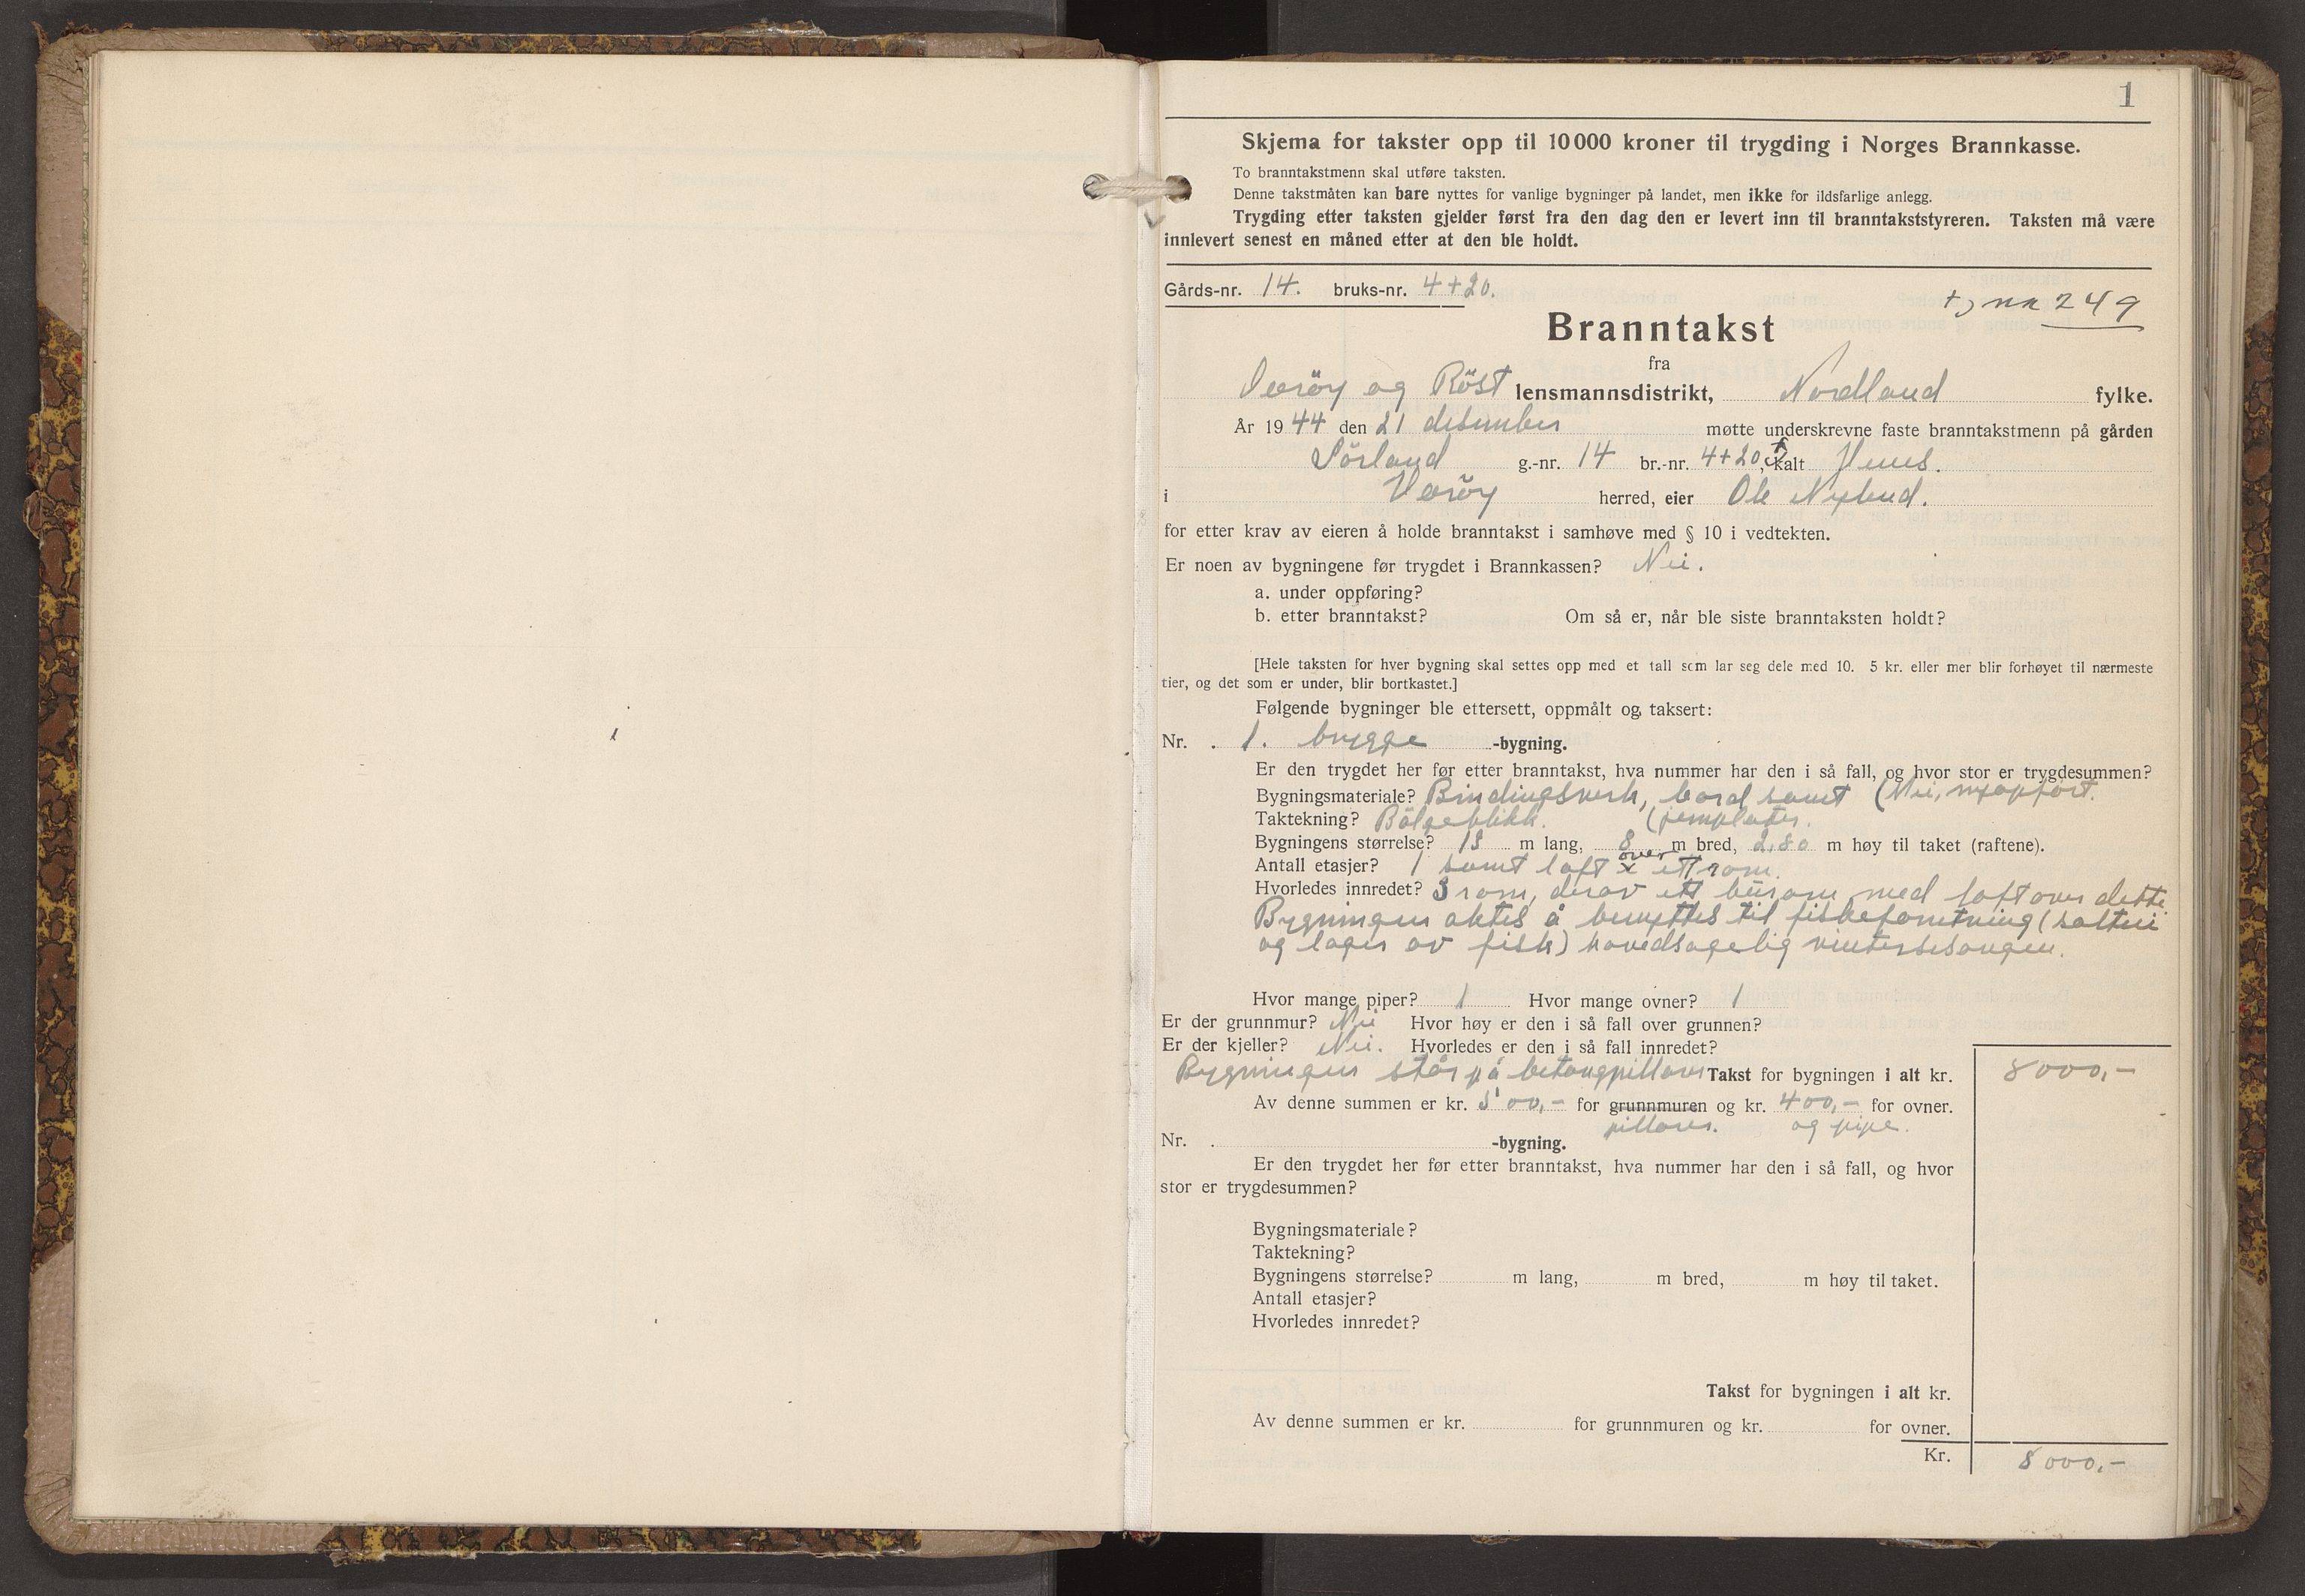 1
Skjema for takster opp til 10000 kroner til trygding i Norges Brannkasse.
To branntakstmenn skal utføre taksten.
Denne takstmåten kan bare nyttes for vanlige bygninger på landet, men ikke for ildsfarlige anlegg.
Trygding etter taksten gjelder først fra den dag den er levert inn til branntakststyreren. Taksten må være
innlevert senest en måned etter at den ble holdt.
Gårds-nr. 14. bruks-nr. 4+20.
+) nr 249
Branntakst
fra
Væröy og Röst lensmannsdistrikt, Nordland fylke.
År 1944 den 21 desember møtte underskrevne faste branntakstmenn på gården
Sörland g.-nr. 14 br.-nr. 4+20, kalt Heus.
i Væröy herred, eier Ole Nylund.
for etter krav av eieren å holde branntakst i samhøve med § 10 i vedtekten.
Er noen av bygningene før trygdet i Brannkassen? Nei.
a. under oppføring?
b. etter branntakst? Om så er, når ble siste branntaksten holdt?
[Hele taksten for hver bygning skal settes opp med et tall som lar seg dele med 10. 5 kr. eller mer blir forhøyet til nærmeste
tier, og det som er under, blir bortkastet.]
Følgende bygninger ble ettersett, oppmålt og taksert:
Nr. 1. brygge -bygning.
Er den trygdet her før etter branntakst, hva nummer har den i så fall, og hvor stor er trygdesummen?
Bygningsmateriale? Bindingsverk, bord samt (Nei, nyoppfört.
Taktekning? Bölgeblikk. (jernplater.
Bygningens størrelse? 13 m lang, 8 m bred, 2,80 m høy til taket (raftene).
Antall etasjer? 1 samt loft x over ett rom.
Hvorledes innredet? 3 rom, derav ett burom med loft over dette.
Bygningen aktes å benyttes til fiskeforretning (salteri
og lager av fisk) hovedsagelig vintersesongen.
Hvor mange piper? 1 Hvor mange ovner? 1
Er der grunnmur? Nei Hvor høy er den i så fall over grunnen?
Er der kjeller? Nei. Hvorledes er den i så fall innredet?
Bygningen står på betongpillarer Takst for bygningen i alt kr. 8000,-
Av denne summen er kr. 500,- for grunnmuren og kr. 400,- for ovner.
pillarer. og pipe.
Nr. -bygning.
Er den trygdet her før etter branntakst, hva nummer har den i så fall, og hvor
stor er trygdesummen?
Bygningsmateriale?
Taktekning?
Bygningens størrelse? m lang, m bred, m høy til taket.
Antall etasjer?
Hvorledes innredet?
Takst for bygningen i alt kr.
Av denne summen er kr. for grunnmuren og kr. for ovner.
Kr. 8000,-